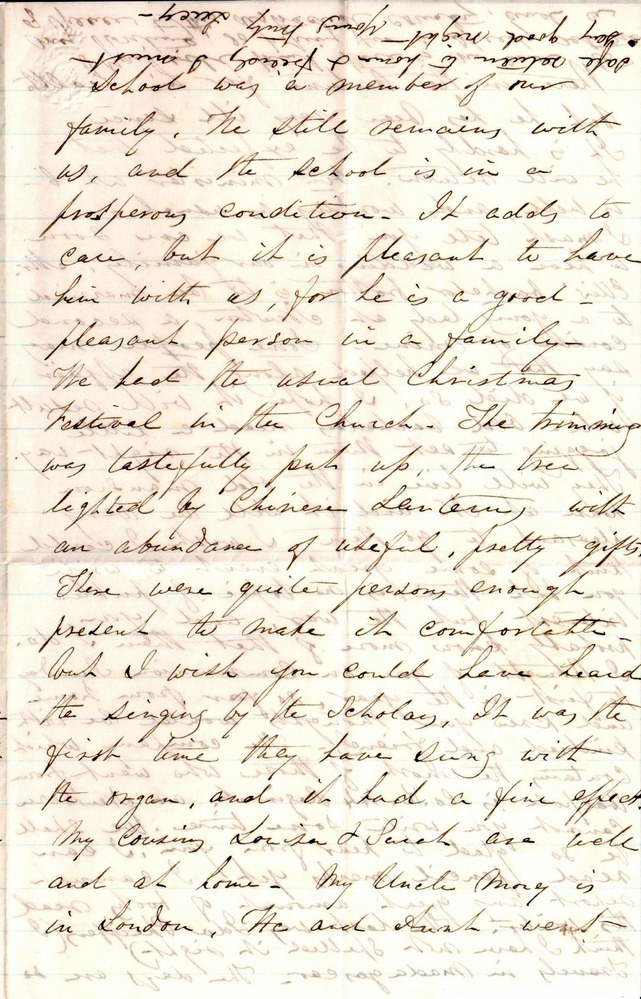 safe return to home & friends I must
say good night - Yours truly
Lucy -
School was a member of our
family. He still remains with
us, and the school is in a
prosperous condition - It adds to
care, but it is pleasant to have
him with us, for he is a good -
pleasant person in a family -
We had the usual Christmas
Festival in the Church - The trimming
was tastefully put up, the tree
lighted by Chinese Lanterns with
an abundance of useful, pretty gifts,
There were quite persons enough
present to make it comfortable -
but I wish you could have heard
the singing by the Scholars, It was the
first time they have sung with
the organ, and it had a fine effect.
My Cousins Louisa & Sarah are well
and at home - My Uncle Morey is
in London, He and Aunt - went -